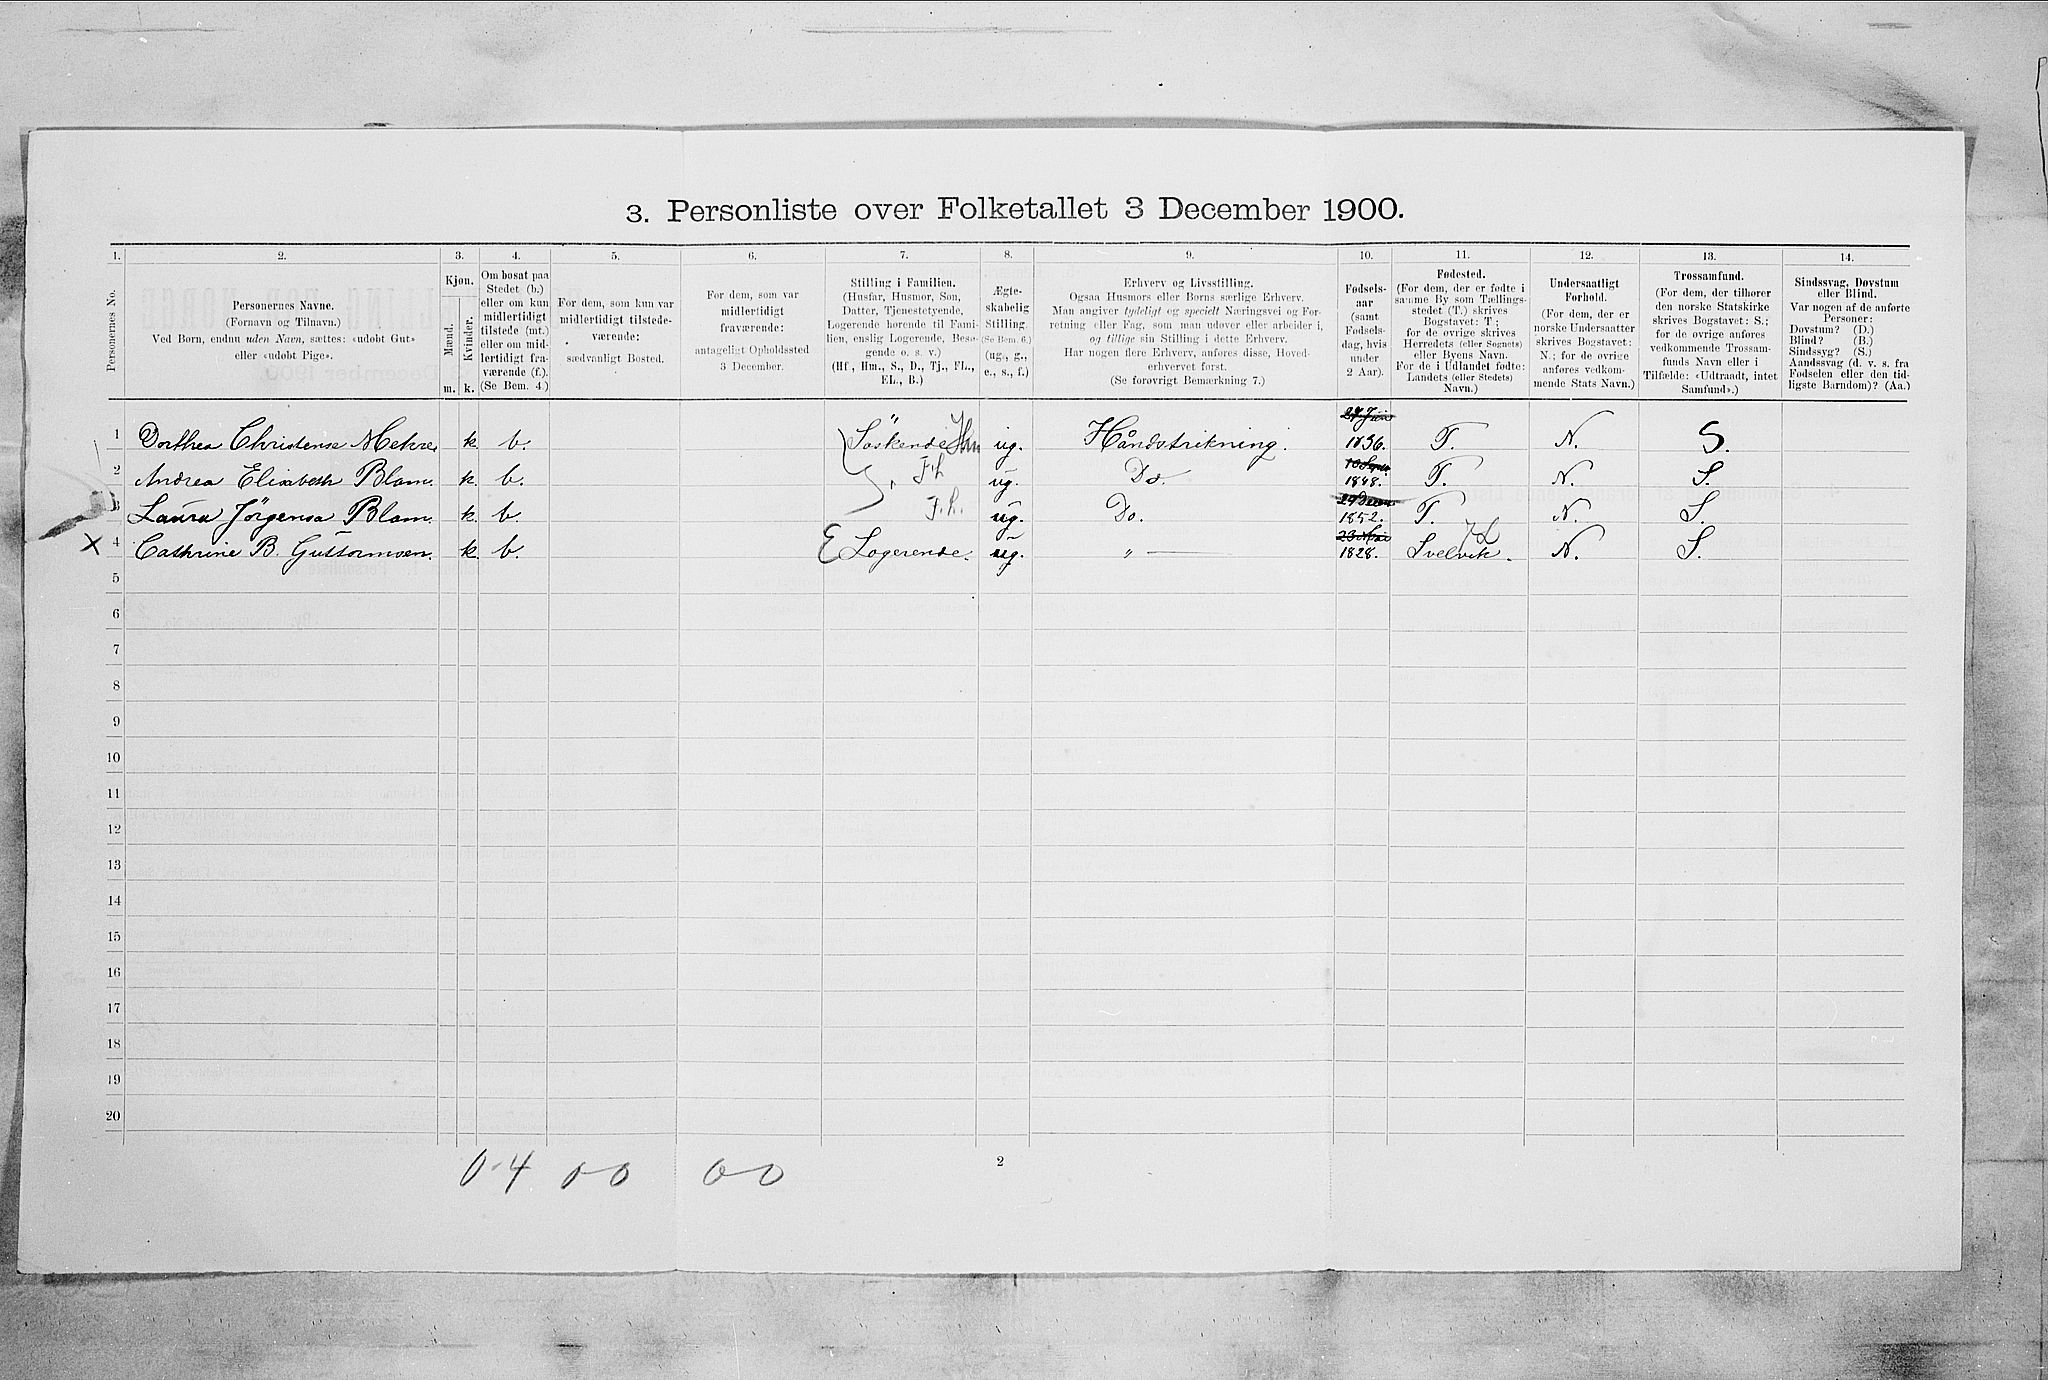 3. Personliste over Folketallet 3 December 1900.
1. 2. 3. 4. 5. 6. 7. 8. 9. 10. 11. 12. 13. 14.
Personernes No.
Personernes Navne.
(Fornavn og Tilnavn.)
Ved Børn, endnu uden Navn, sættes: «udøbt Gut»
eller «udøbt Pige».
Kjøn.
Mænd.
Kvinder.
m. k.
Om bosat paa
Stedet (b.)
eller om kun
midlertidigt
tilstede (mt.)
eller om mid-
lertidigt fra-
værende (f.).
(Se Bem. 4.)
For dem, som kun var
midlertidigt tilstede-
værende:
sædvanligt Bosted.
For dem, som var
midlertidigt
fraværende:
antageligt Opholdssted
3 December.
Stilling i Familien.
(Husfar, Husmor, Søn,
Datter, Tjenestetyende,
Logerende hørende til Fami-
lien, enslig Logerende, Besø-
gende o. s. v.)
(Hf., Hm., S., D., Tj., FL.,
EL., B.)
Ægte-
skabelig
Stilling.
(Se Bem. 6.)
(ug., g.,
e., s., f.)
Erhverv og Livsstilling.
Ogsaa Husmors eller Børns særlige Erhverv.
Man angiver tydeligt og specielt Næringsvei og For-
retning eller Fag, som man udøver eller arbeider i,
og tillige sin Stilling i dette Erhverv.
Har nogen flere Erhverv, anføres disse, Hoved-
erhvervet først.
(Se forøvrigt Bemærkning 7.)
Fødsels-
aar
(samt
Fødsels-
dag, hvis
under
2 Aar).
Fødested.
(For dem, der er fødte i
samme By som Tællings-
stedet (T.) skrives
Bogstavet: T;
for de øvrige skrives
Herredets (eller Sognets)
eller Byens Navn.
For de i Udlandet fødte:
Landets (eller Stedets)
Navn.)
Undersaatligt
Forhold.
(For dem, der er
norske Undersaatter
skrives Bogstavet:
N.; for de øvrige
anføres vedkom-
mende Stats Navn.)
Trossamfund.
(For dem, der tilhører
den norske Statskirke
skrives Bogstavet: S.;
for de øvrige anføres
vedkommende Trossam-
funds Navn eller i
Tilfælde: «Udtraadt, intet
Samfund».)
Sindssvag, Døvstum
eller Blind.
Var nogen af de anførte
Personer:
Døvstum? (D.)
Blind? (B.)
Sindssyg? (S.)
Aandssvag (d. v. s. fra
Fødselen eller den tid-
ligste Barndom)? (Aa.)
1 Dorthea Christense k. b. Söskende Hm ug. Håndstrikning. 1836. T. N. S.
2 Andrea Elisabeth Blom. k. b. F.L. ug. Do. 10 Sept. 1848. T. N. S.
3 Laura Jörgensa Blom. k. b. F.L. ug. Do. 1852. T. N. S.
X 4 Cathrine B. Guttormsen. k. b. E Logerende. ug. " — 23 Mai 1828. Svelvik. N. S.
5
6
7
8
9
10
11
12
13
14
15
16
17
18
19
20
0-4 0-0 0-0 2